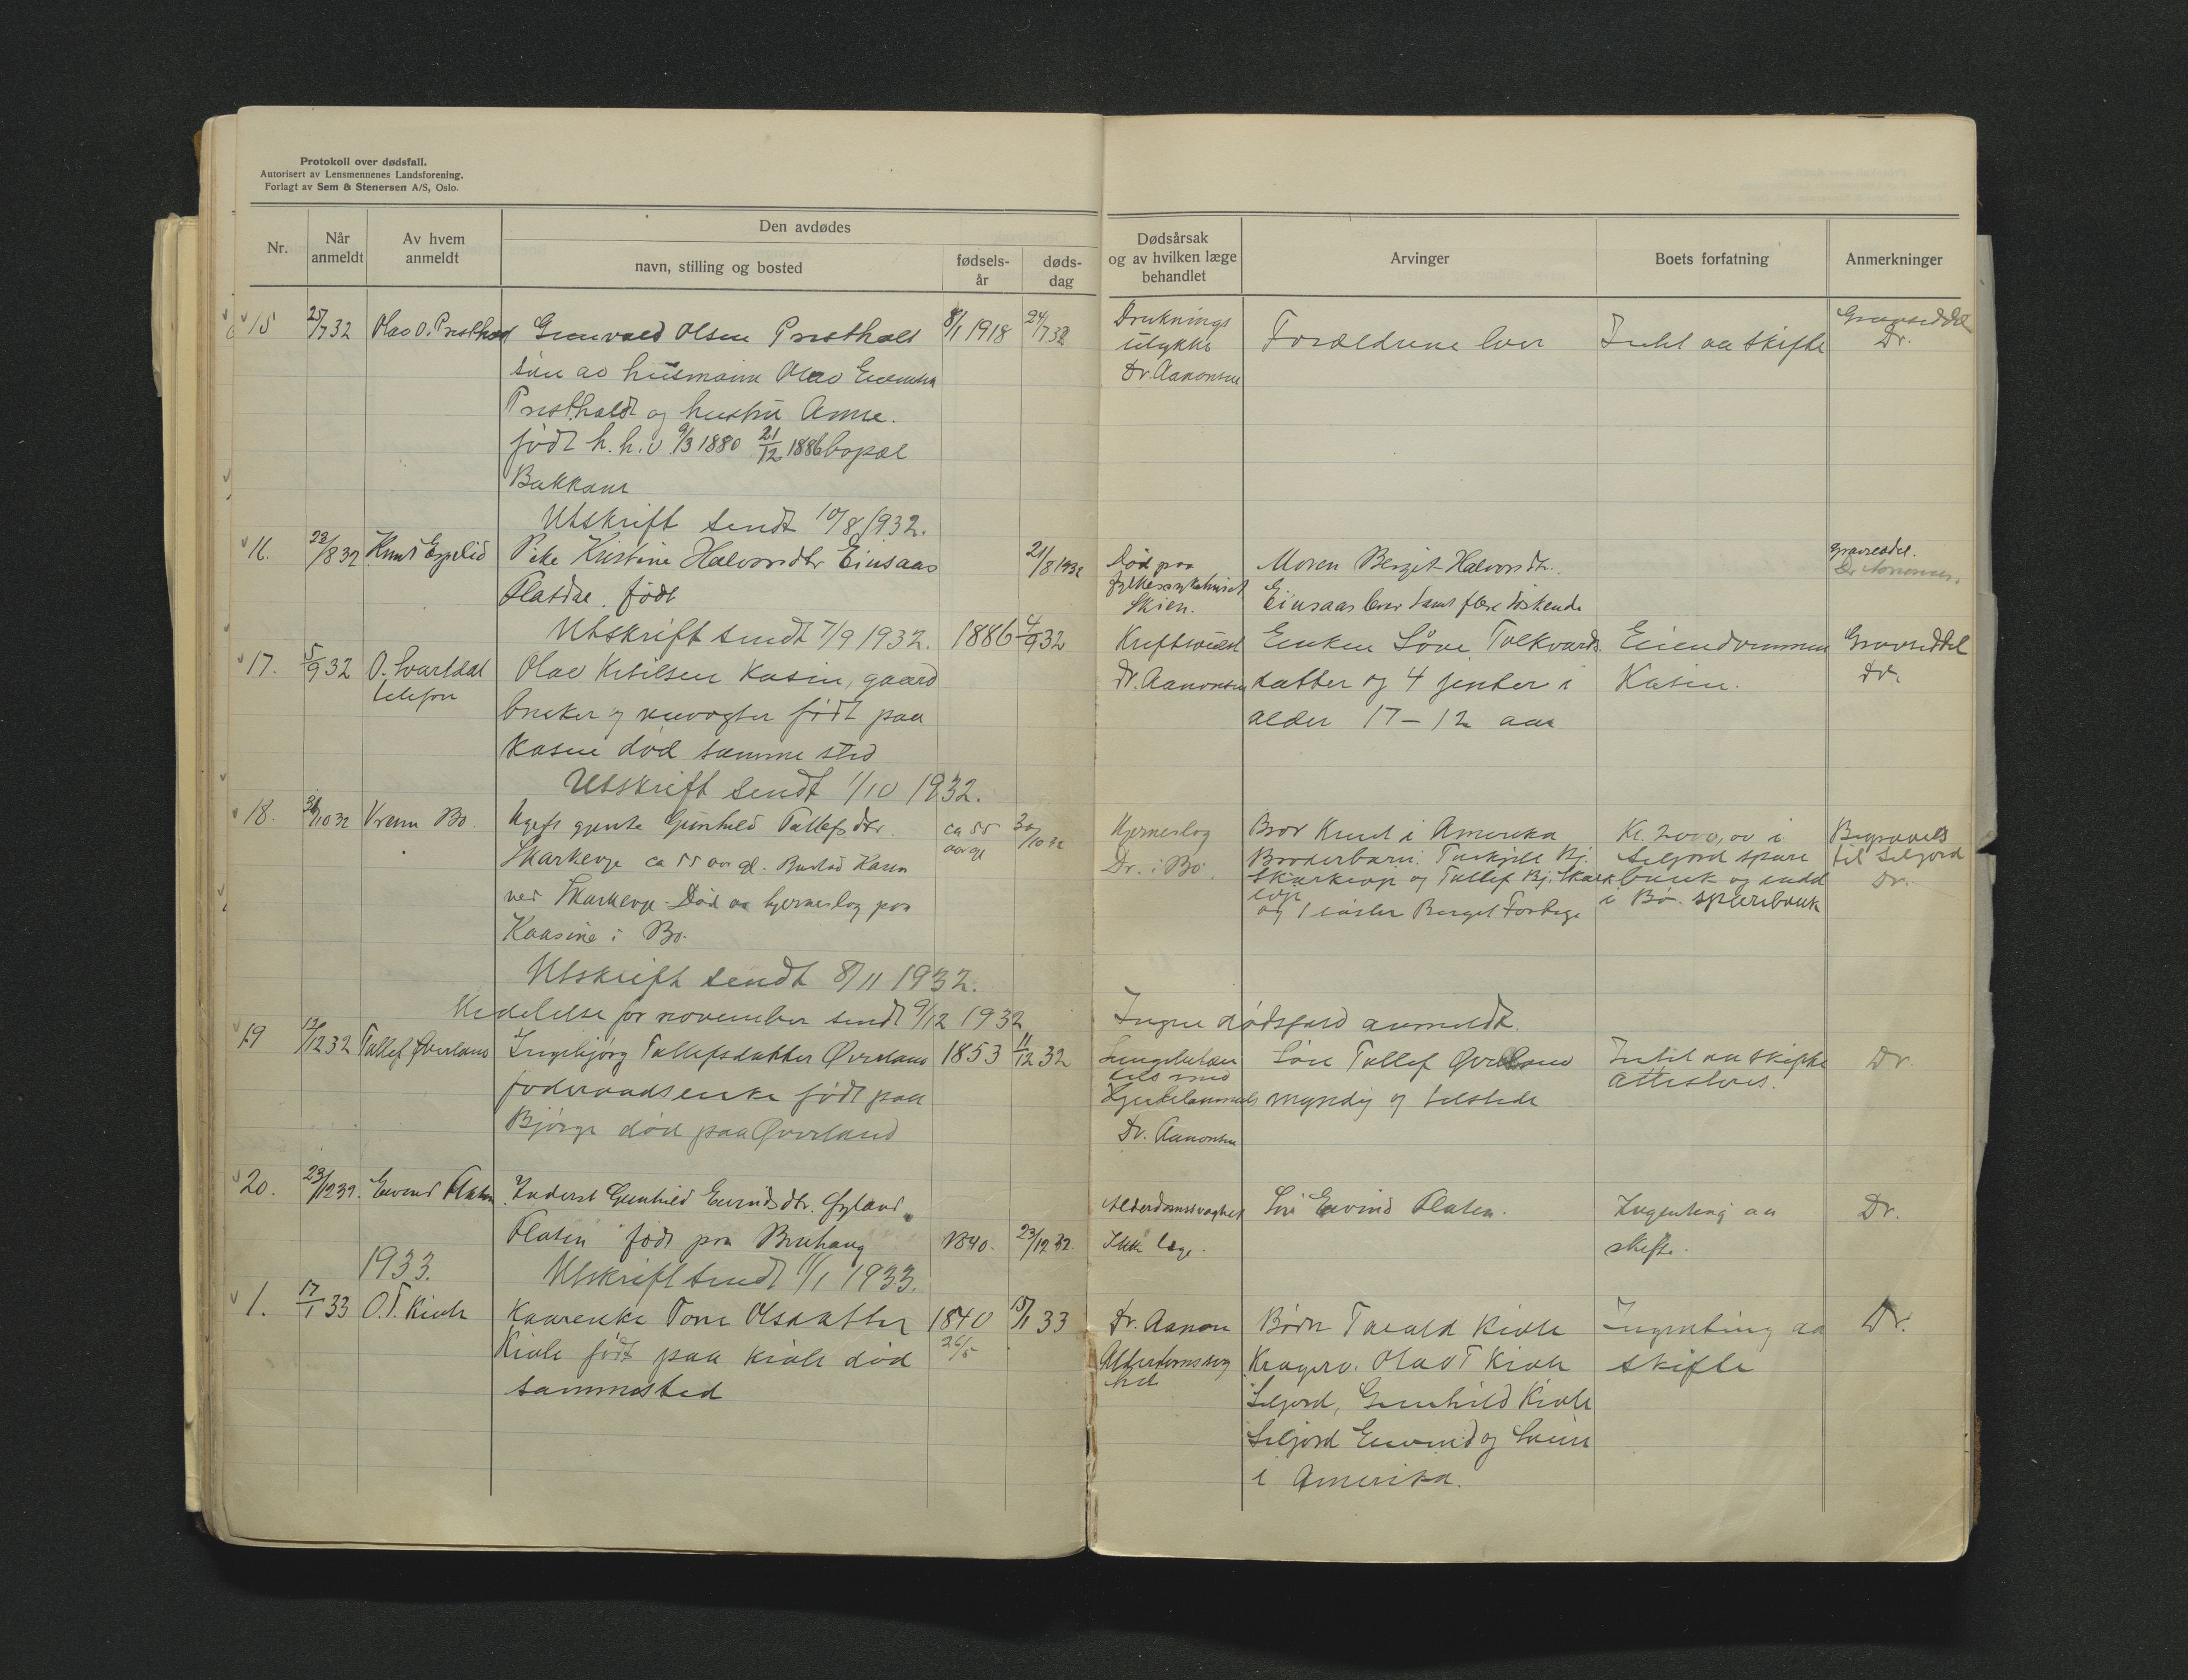 Protokoll over dødsfall.
Autorisert av Lensmennenes Landsforening.
Forlagt av Sem & Stenersen A/S, Oslo.
Nr.
Når anmeldt
Av hvem anmeldt
Den avdødes
navn, stilling og bosted
fødsels-år
døds-dag
Dødsårsak og av hvilken læge behandlet
Arvinger
Boets forfatning
Anmerkninger
15 25/7 32 Olav O. Presthold Gunvald Olsen Presthold 8/1 1918 24/7 32
søn av husmann Olav
Prestholdt og hustru Anne.
født h. h. v 9/3 1880 21/12 1886 bopæl
Bakkane
Druknings
ulykke
Dr. Aanonsen
Foreldrene lever
Intet aa skifte
Gravseddel
Dr.
Utskrift sendt 10/8 1932.
16. 22/8 32 Knut Espelid Pike Kristine Halvorsdtr Einsaas 21/8 1932
Flatdal. født
Død paa
fylkessykehuset
Skien.
Moren Berget Halvorsdtr.
Einsaas lever samt flere søskende
Gravseddel.
Dr Aanonsen.
Utskrift sendt 7/9 1932.
17. 5/9 32 O. Svartdal
telefon
Olav Ketilsen Kasin, gaard 1886 4/9 32
bruker og født paa
Kasin død samme sted
Kreftsvulst
Dr. Aanonsen
Enken Søve Tolkvards
datter og 4 jenter i
alder 17 – 12 aar
Eiendommen
Kasin.
Gravseddel
Dr.
Utskrift sendt 1/10 1932.
18. 31/10 32 Bø. Ugift gjente Gunhild Tallefsdtr. ca 55 aar gl 30/10 32
Skarkeoge ca 55 aar gl. Bustad Kasin
ved Skarkeoge. Død av hjerneslag paa
Kaasine i Bø.
Hjerneslag
Dr. i Bø.
Bror Knut i Amerika
Broderbarn. Torkjell Bj.
Skarkeoge og Tallef Bj. Skark
eoge
og 1 søster Berget Forberge
Kr. 2000,00 i
Seljord spare
bank og indd
i Bø. sparebank
Begravels
til Seljord
Dr.
Utskrift sendt 8/11 1932.
Medelelse for november sendt 9/12 1932
Ingen dødsfald anmeldt.
19 12/12 32 Tallef Øverland Ingebjørg Tallefsdatter Øverland 1853 11/12 32
føderaadsenke født paa
Bjørge død paa Øverland
Lungebetæn
else med
Hjertelammels
Dr. Aanonsen
Søn Tallef Øverland
myndig og tilstede
Intet aa skifte
attesteres.
Dr.
20. 23/12 32. Eivind Flatin. Inderst Gunhild Eivindsdtr. Gyland.
Flatin født paa Bruhaug 1840. 23/12 32.
Alderdomssvaghet
Ikke læge.
Søn Eivind Flatin.
Ingenting aa
skifte.
Dr.
Utskrift sendt 11/1 1933.
1933.
1. 17/1 33 O. T. Kivle Kaarenke Tone Olsdatter 1840 15/1 33
26/5
Kivle født paa Kivle død
sammested
Dr. Aanon
Alderdomssvag
het
Børn Tarald Kivle
Kragerø. Olav T Kivle
Seljord, Gunhild Kivle
Seljord Eivind og Svein
i Amerika.
Ingenting aa
skifte
Dr.